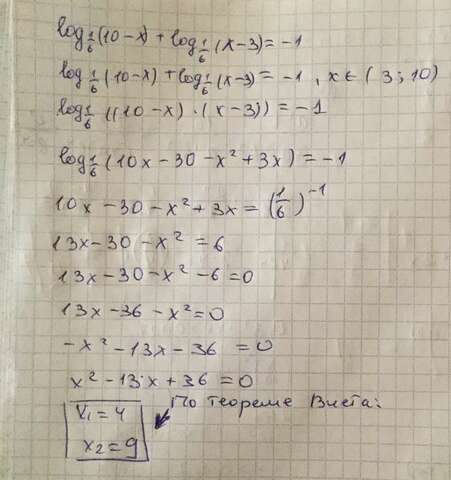 log_{1/6}(10-x) + log_{1/6}(x-3) = -1
log_{1/6}(10-x) + log_{1/6}(x-3) = -1, x ∈ (3; 10)
log_{1/6}((10-x)·(x-3)) = -1
log_{1/6}(10x - 30 - x² + 3x) = -1
10x - 30 - x² + 3x = (1/6)^{-1}
13x - 30 - x² = 6
13x - 30 - x² - 6 = 0
13x - 36 - x² = 0
-x² - 13x - 36 = 0
x² - 13x + 36 = 0
По теореме Виета:
x₁ = 4
x₂ = 9